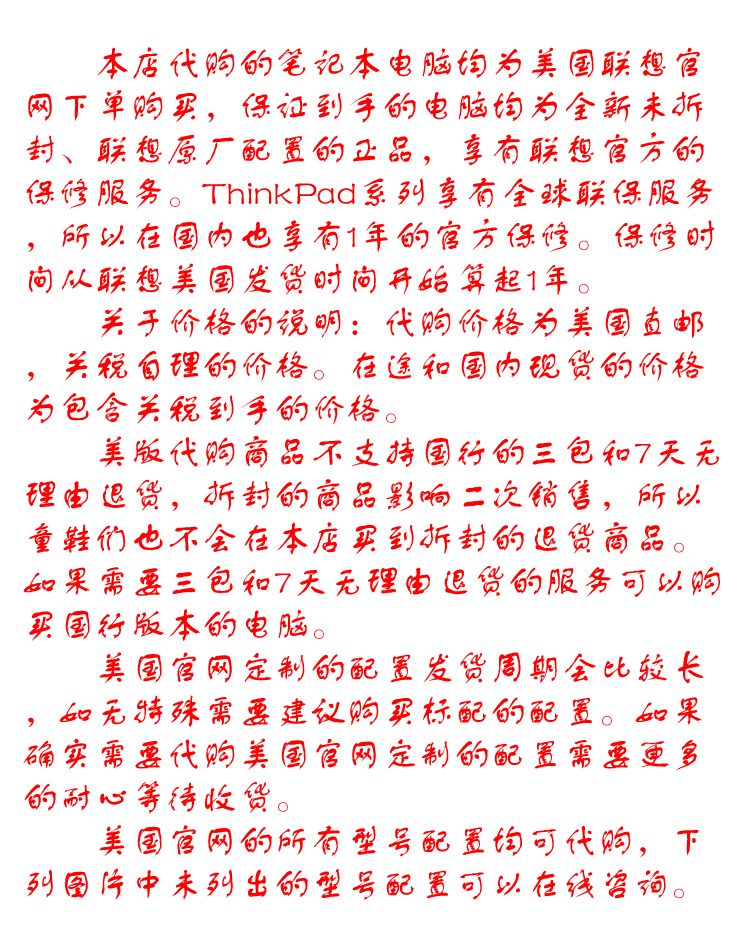 本店代购的笔记本电脑均为美国联想官
网下单购买，保证到手的电脑均为全新未拆
封、联想原厂配置的正品，享有联想官方的
保修服务。ThinkPad系列享有全球联保服务
，所以在国内也享有1年的官方保修。保修时
间从联想美国发货时间开始算起1年。
关于价格的说明：代购价格为美国直邮
，关税自理的价格。在途和国内现货的价格
为包含关税到手的价格。
美版代购商品不支持国行的三包和7天无
理由退货，拆封的商品影响二次销售，所以
童鞋们也不会在本店买到拆封的退货商品。
如果需要三包和7天无理由退货的服务可以购
买国行版本的电脑。
美国官网定制的配置发货周期会比较长
，如无特殊需要建议购买标配的配置。如果
确实需要代购美国官网定制的配置需要更多
的耐心等待收货。
美国官网的所有型号配置均可代购，下
列图片中未列出的型号配置可以在线咨询。